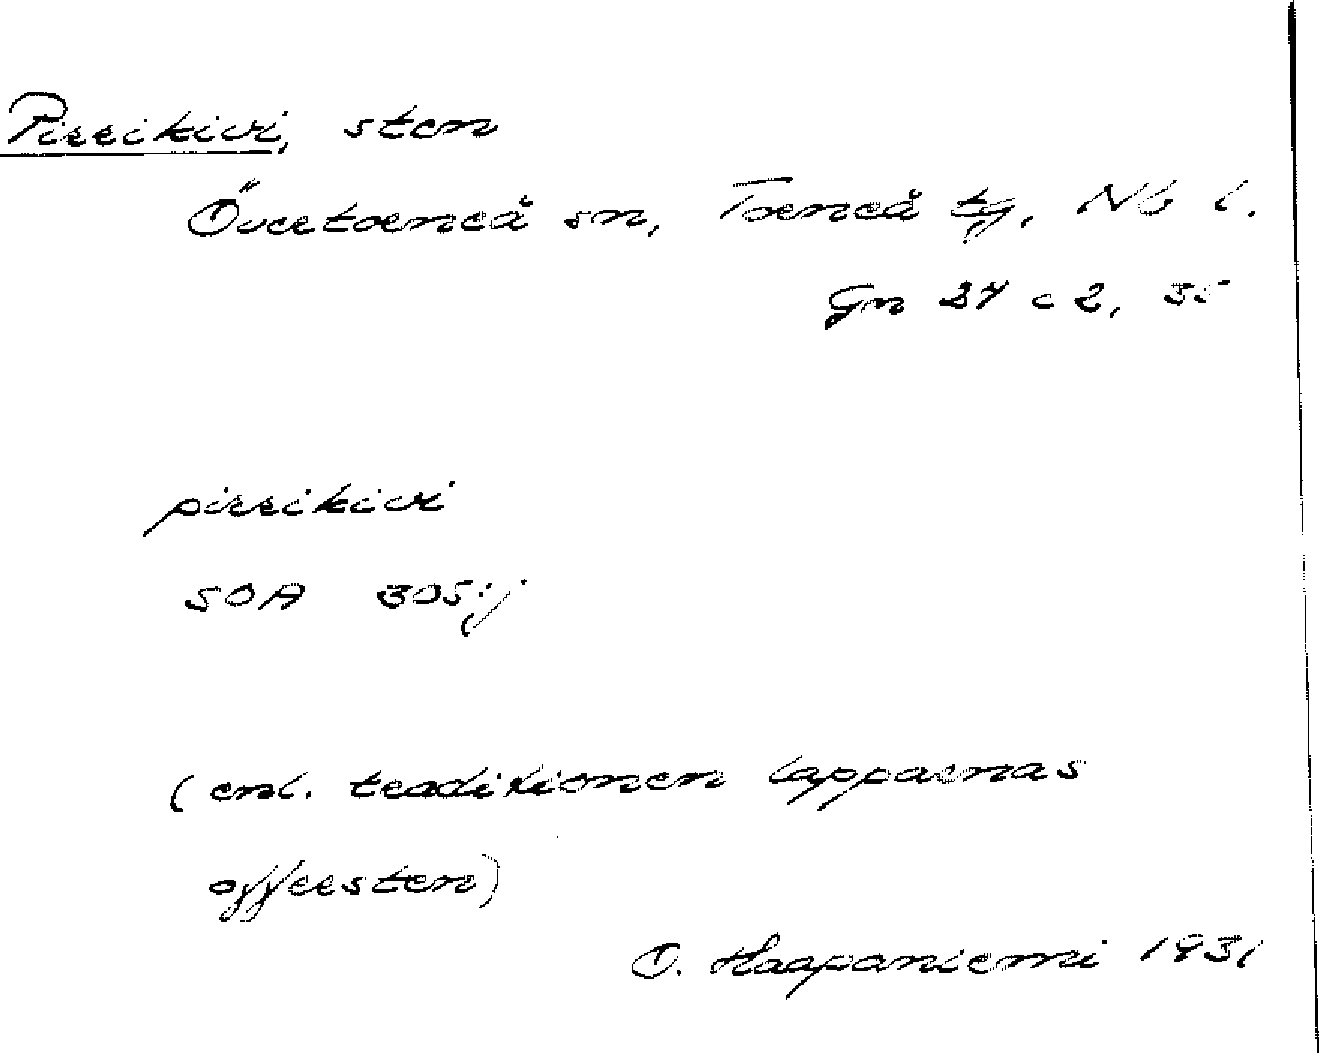 Pirrikivi, sten
Övertorneå sn, Torneå tg, Nb l.
Gn 27 c 2, 35
pirrikivi
SOA 305:j
(enl. traditionen lapparnas
offersten)
O. Haapaniemi 1931